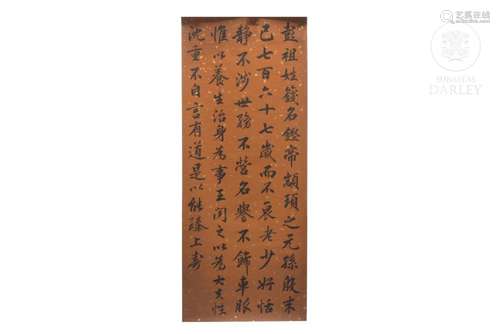 彭祖姓籛名鏗帝顓頊之元孫殷末
已七百六十七歲而不衰老少好恬
静不涉世務不營名譽不飾車服
惟以養生治身為事王聞之以為大夫性
沈重不自言有道是以能臻上壽
SUBASTAS
DARLEY